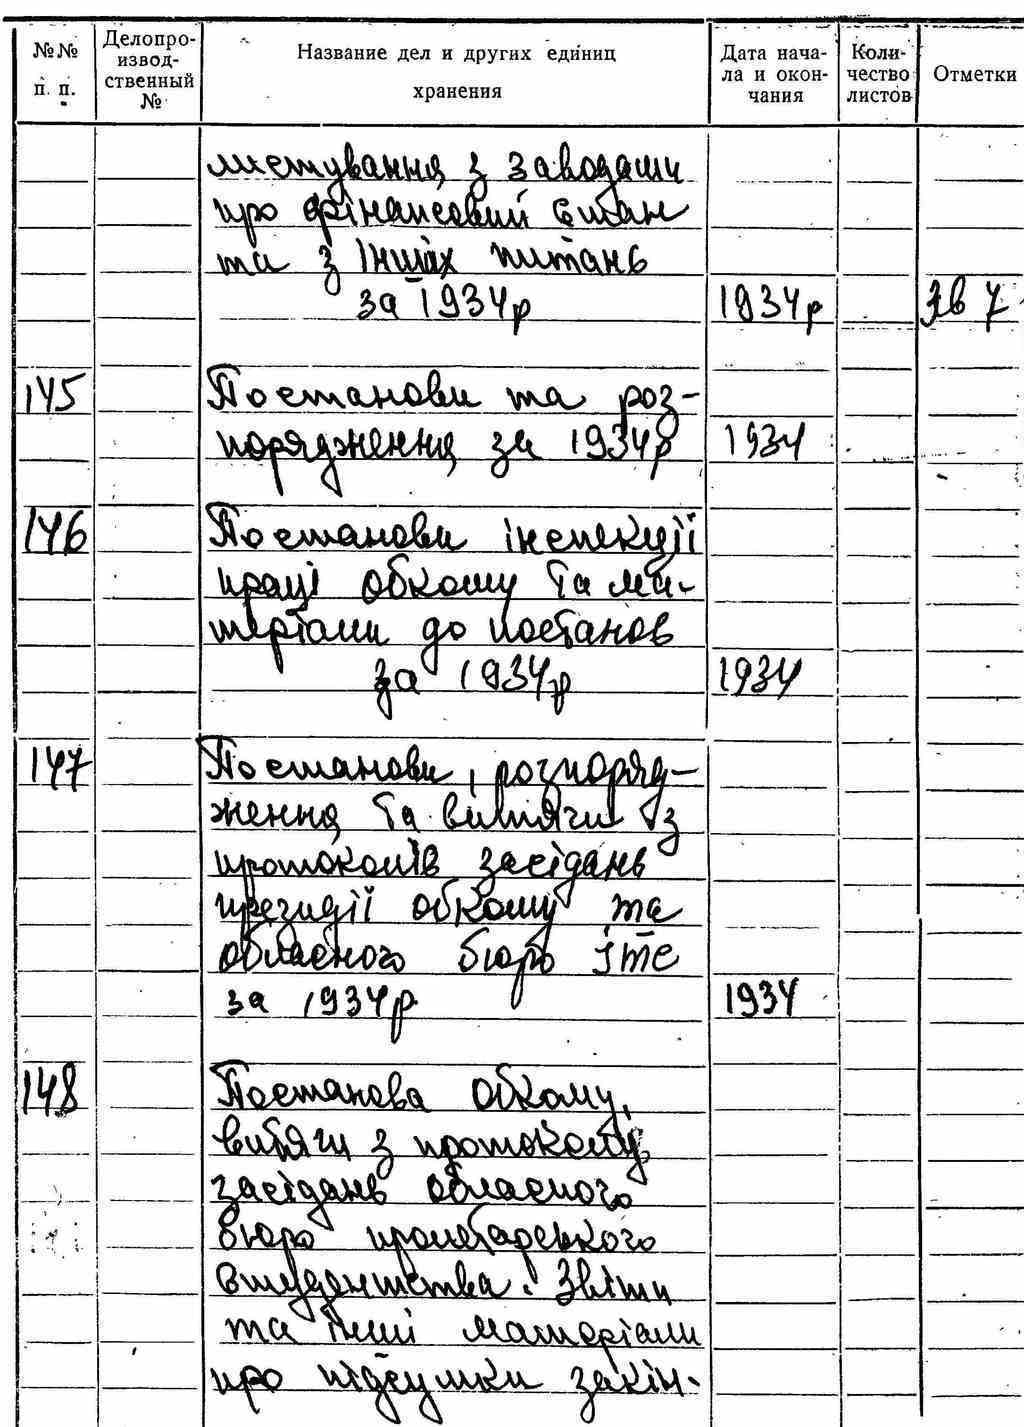 №№ п. п.
Делопро-
извод-
ственный
№
Название дел и других единиц
хранения
Дата нача-
ла и окон-
чания
Коли-
чество
листов
Отметки
листування з заводами
про фінансовий стан
та з інших питань
за 1934р 1934р Зв 7
145 Постанови та роз-
порядження за 1934р 1934
146 Постанови інспекції
праці обкому та ма-
теріали до постанов
за 1934р 1934
147 Постанови, розпоряд-
ження та витяги із
протоколів засідань
президії обкому та
обласного бюро ІТС
за 1934р 1934
148 Постанова обкому,
витяги з протоколу
засідань обласного
бюро пролетарського
студентства. Звіти
та інші матеріали
про підсумки закін-